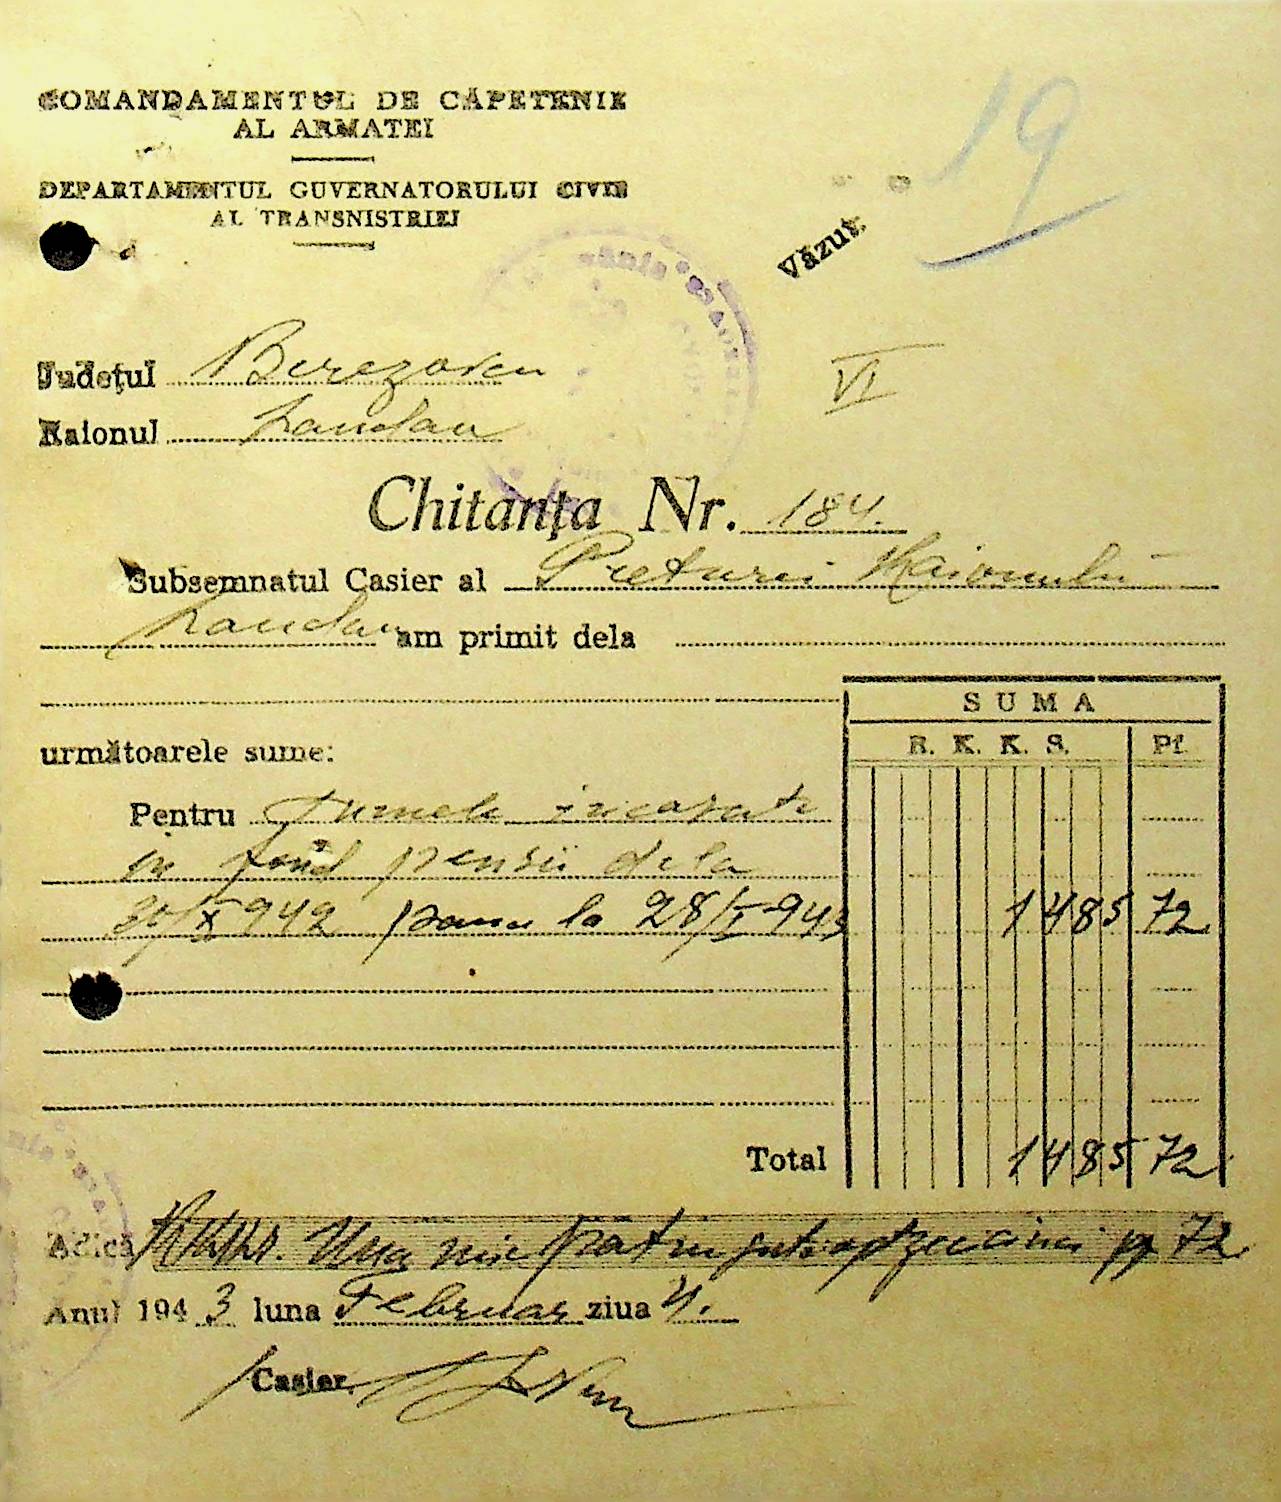 19
COMANDAMENTUL DE CĂPETENIE
AL ARMATEI
DEPARTAMENTUL GUVERNATORULUI CIVIL
AL TRANSNISTRIEI
Văzut.
Județul Berezovca
VI
Raionul Landau
Chitanța Nr. 184.
Subsemnatul Casier al Preturei Raionului
Landau am primit dela
SUMA
R. K. K. S. Pf.
următoarele sume:
Pentru sumele incasate
in fond pensii dela
30/X 942 pana la 28/I-943 1485 72
Total 1485 72
Adică RKKS. Una mie patru sute optzeci cinci pf 72
Anul 1943 luna Februar ziua 4.
Casier,